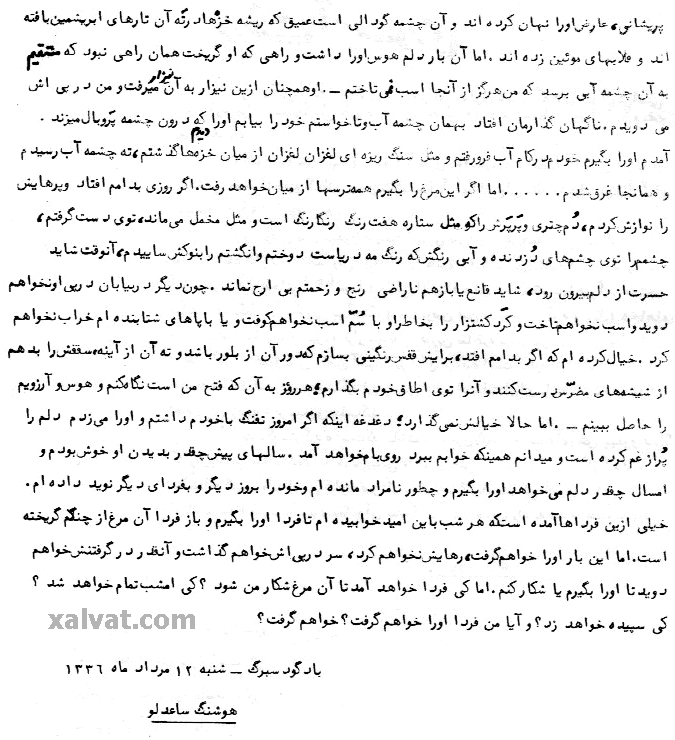 پریشانی، عارض اورا نهان کرده اند و آن چشمه گودالی است عمیق که ریشه خزه‌ها در ته آن تارهای ابریشمین بافته
اند و قلابهای موئین زده اند . اما آن بار دلم هوس اورا داشت و راهی که او گریخت همان راهی نبود که مستقیم
به آن چشمه آبی برسد که من هرگز از آنجا اسب نمی تاختم ـ . او همچنان ازین نیزار به آن نیزار میرفت و من در پی اش
می دویدم . ناگهان گذارمان افتاد بهمان چشمه آب و تا خواستم خود را بیابم اورا که دیدم درون چشمه پروبال میزند .
آمدم اورا بگیرم خودم در کام آب فرو رفتم و مثل سنگ ریزه ای لغزان لغزان از میان خزه‌ها گذشتم، ته چشمه آب رسیدم
و همانجا غرق شدم . . . . . . اما اگر این مرغ را بگیرم همه ترسها از میان خواهد رفت. اگر روزی بدامم افتاد و پرهایش
را نوازش کردم ، دُم چتری و پرپرش را که مثل ستاره هفت رنگ رنگارنگ است و مثل مخمل می‌ماند، توی دست گرفتم،
چشمم را توی چشم‌های دُزدنده و آبی رنگش که رنگ مه دریاست دوختم و انگشتم را بنوکش ساییدم، آنوقت شاید
حسرت از دلم بیرون رود، شاید قانع یا بازهم ناراضی رنج و زحمتم بی ارج نماند . چون دیگر در بیابان در پی او نخواهم
دوید و اسب نخواهم تاخت و گرد کشتزار را بخاطر او با سُمّ اسب نخواهم کوفت و یا با پاهای شتابنده ام خراب نخواهم
کرد . خیال کرده ام که اگر بدامم افتد، برایش قفس رنگینی بسازم که دور آن از بلور باشد و ته آن از آینه، سقفش را بدهم
از شیشه‌های مضرّس درست کنند و آنرا توی اطاق خودم بگذارم؛ هرروز به آن که فتح من است نگاه کنم و هوس و آرزویم
را حاصل ببینم ـ . اما حالا خیالش نمی گذارد؛ دغدغه اینکه اگر امروز تفنگ با خودم داشتم و اورا می زدم دلم را
پُر از غم کرده است و میدانم همینکه خوابم ببرد روی بام خواهد آمد . سالهای پیش چقدر بدیدن او خوش بودم و
امسال چقدر دلم می خواهد اورا بگیرم و چطور نامراد مانده ام و خود را بروز دیگر و بفردای دیگر نوید داده ام .
خیلی ازین فرداها آمده است که هر شب باین امید خوابیده ام تا فردا اورا بگیرم و باز فردا آن مرغ از چنگم گریخته
است. اما این بار اورا خواهم گرفت، رهایش نخواهم کرد، سر در پی اش خواهم گذاشت و آنقدر در گرفتنش خواهم
دوید تا اورا بگیرم یا شکار کنم . اما کی فردا خواهد آمد تا آن مرغ شکار من شود ؟ کی امشب تمام خواهد شد ؟
کی سپیده خواهد زد؟ و آیا من فردا اورا خواهم گرفت؟ خواهم گرفت؟
باد گود سبرگ ـ شنبه ١٢ مرداد ماه ١٣٣٦
هوشنگ ساعدلو
xalvat.com